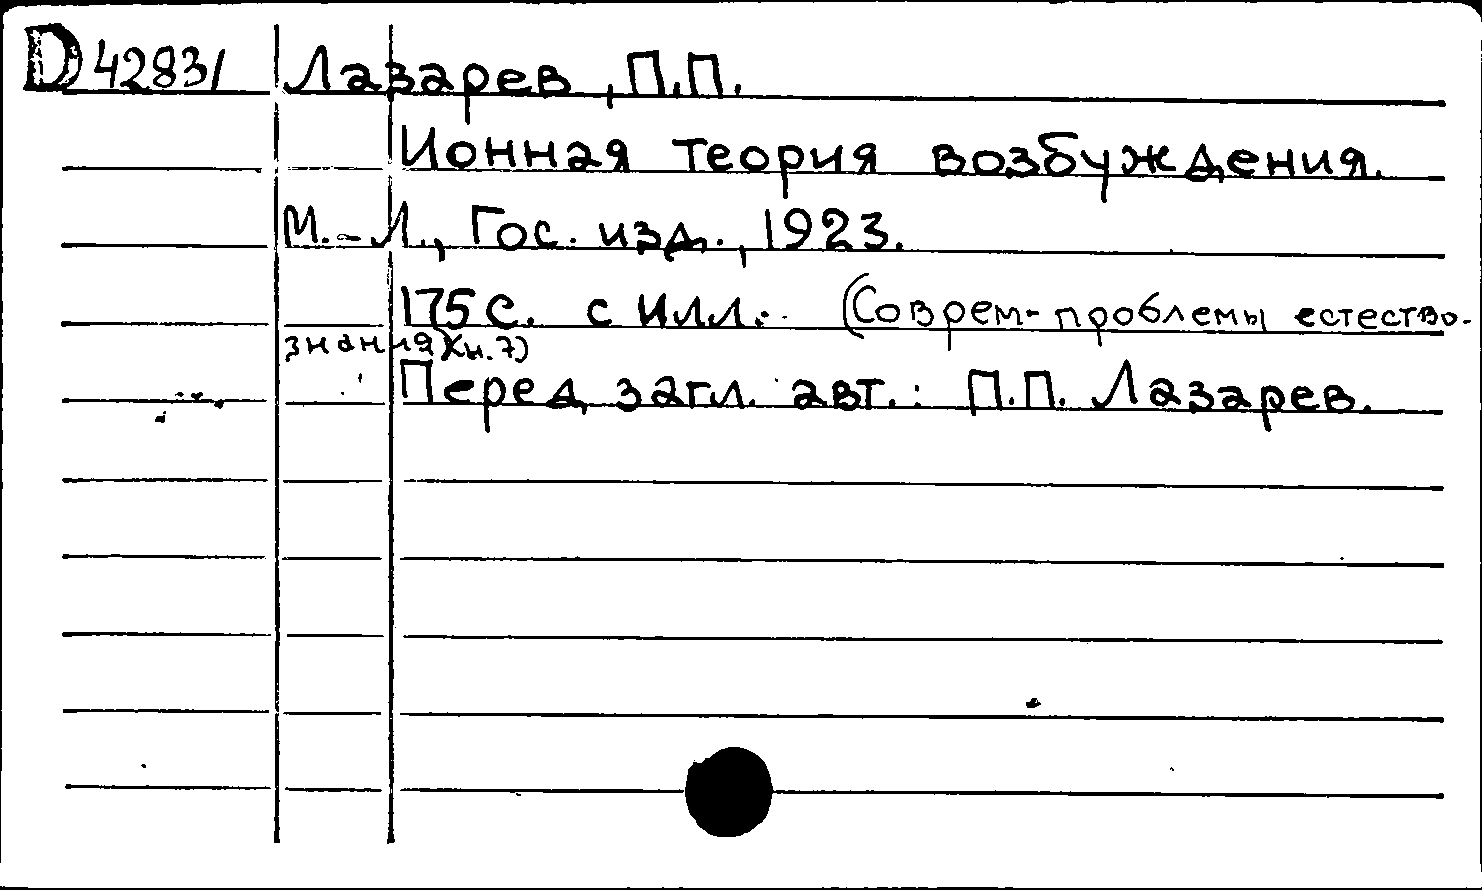 D 42831 Лазарев, П.П.
Ионная теория возбуждения.
М.-Л., Гос. изд., 1923.
175 с. с илл. (Соврем. проблемы естество-
знания) (кн. 7)
Перед загл. авт.: П.П. Лазарев.